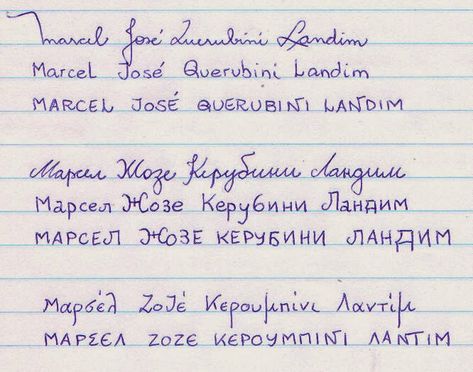 Marcel José Querubini Landim
Marcel José Querubini Landim
MARCEL JOSÉ QUERUBINI LANDIM
Марсел Жозе Керубини Ландим
Марсел Жозе Керубини Ландим
МАРСЕЛ ЖОЗЕ КЕРУБИНИ ЛАНДИМ
Μαρσέλ Ζοζέ Κερουμπίνι Λαντίμ
ΜΑΡΣΕΛ ΖΟΖΕ ΚΕΡΟΥΜΠΙΝΙ ΛΑΝΤΙΜ